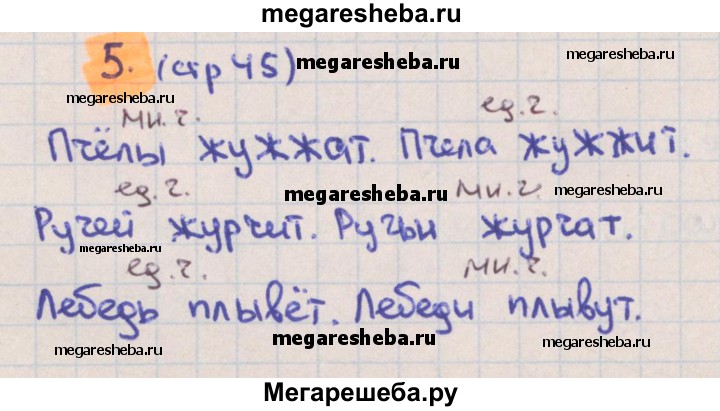 megaresheba.ru
5. (стр 45) megaresheba.ru megaresheba.ru
megaresheba.ru
мн.ч. ед.ч.
Пчёлы жужжат. Пчела жужжит.
ед.ч. megaresheba.ru мн.ч. megaresheba.ru
Ручей журчит. Ручьи журчат.
megaresheba.ru
ед.ч. мн.ч.
Лебедь плывёт. Лебеди плывут.
megaresheba.ru megaresheba.ru megaresheba.ru
Мегарешеба.ру